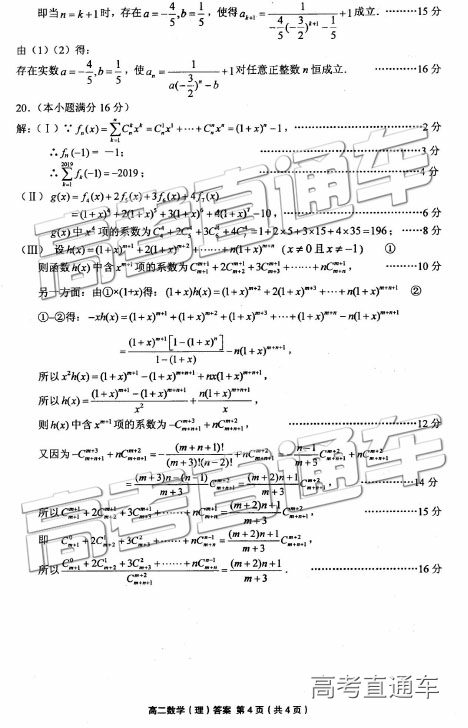 即当n=k+1时，存在a=-4/5,b=1/5，使得a_{k+1}=1/(-4/5(-3/2)^{k+1}-1/5)+1成立．………15分
由（1）（2）得：
存在实数a=-4/5,b=1/5，使a_n=1/(a(-3/2)^n-b)+1对任意正整数n恒成立．………16分
20．（本小题满分16分）
解：（Ⅰ）∵f_n(x)=∑_{k=1}^{n}C_n^k x^k=C_n^1x^1+⋯+C_n^n x^n=(1+x)^n-1，………2分
∴f_n(-1)=-1；………3分
∴∑_{k=1}^{2019}f_k(-1)=-2019；………4分
（Ⅱ）g(x)=f_4(x)+2f_5(x)+3f_6(x)+4f_7(x)
=(1+x)^4+2(1+x)^5+3(1+x)^6+4(1+x)^7-10，………6分
g(x)中x^4项的系数为C_4^4+2C_5^4+3C_6^4+4C_7^4=1+2×5+3×15+4×35=196；……8分
（Ⅲ）设h(x)=(1+x)^{m+1}+2(1+x)^{m+2}+⋯⋯+n(1+x)^{m+n}（x≠0且x≠-1）①
则函数h(x)中含x^{m+1}项的系数为C_{m+1}^{m+1}+2C_{m+2}^{m+1}+3C_{m+3}^{m+1}+⋯⋯+nC_{m+n}^{m+1}，………10分
另一方面：由①×(1+x)得：(1+x)h(x)=(1+x)^{m+2}+2(1+x)^{m+3}+⋯+n(1+x)^{m+n+1} ②
①-②得：-xh(x)=(1+x)^{m+1}+(1+x)^{m+2}+(1+x)^{m+3}+⋯+(1+x)^{m+n}-n(1+x)^{m+n+1}
=(1+x)^{m+1}[1-(1+x)^n]/(1-(1+x))-n(1+x)^{m+n+1}，
所以x²h(x)=(1+x)^{m+1}-(1+x)^{m+n+1}+nx(1+x)^{m+n+1}，
所以h(x)=((1+x)^{m+1}-(1+x)^{m+n+1})/x²+n(1+x)^{m+n+1}/x，
则h(x)中含x^{m+1}项的系数为-C_{m+n+1}^{m+3}+nC_{m+n+1}^{m+2}，………12分
又因为-C_{m+n+1}^{m+3}+nC_{m+n+1}^{m+2}=-(m+n+1)!/((m+3)!(n-2)!)+nC_{m+n+1}^{m+2}=-(n-1)/(m+3)C_{m+n+1}^{m+2}+nC_{m+n+1}^{m+2}
=((m+3)n-(n-1))/(m+3)C_{m+n+1}^{m+2}=((m+2)n+1)/(m+3)C_{m+n+1}^{m+2}，………14分
所以C_{m+1}^{m+1}+2C_{m+2}^{m+1}+3C_{m+3}^{m+1}+⋯⋯+nC_{m+n}^{m+1}=((m+2)n+1)/(m+3)C_{m+n+1}^{m+2}，………15分
即C_{m+1}^0+2C_{m+2}^1+3C_{m+3}^2+⋯⋯+nC_{m+n}^{n-1}=((m+2)n+1)/(m+3)C_{m+n+1}^{m+2}，
所以(C_{m+1}^0+2C_{m+2}^1+3C_{m+3}^2+⋯⋯+nC_{m+n}^{n-1})/C_{m+n+1}^{m+2}=((m+2)n+1)/(m+3)．………16分
高考直通车
高考直通车
高考直通车
高二数学（理）答案 第4页（共4页）